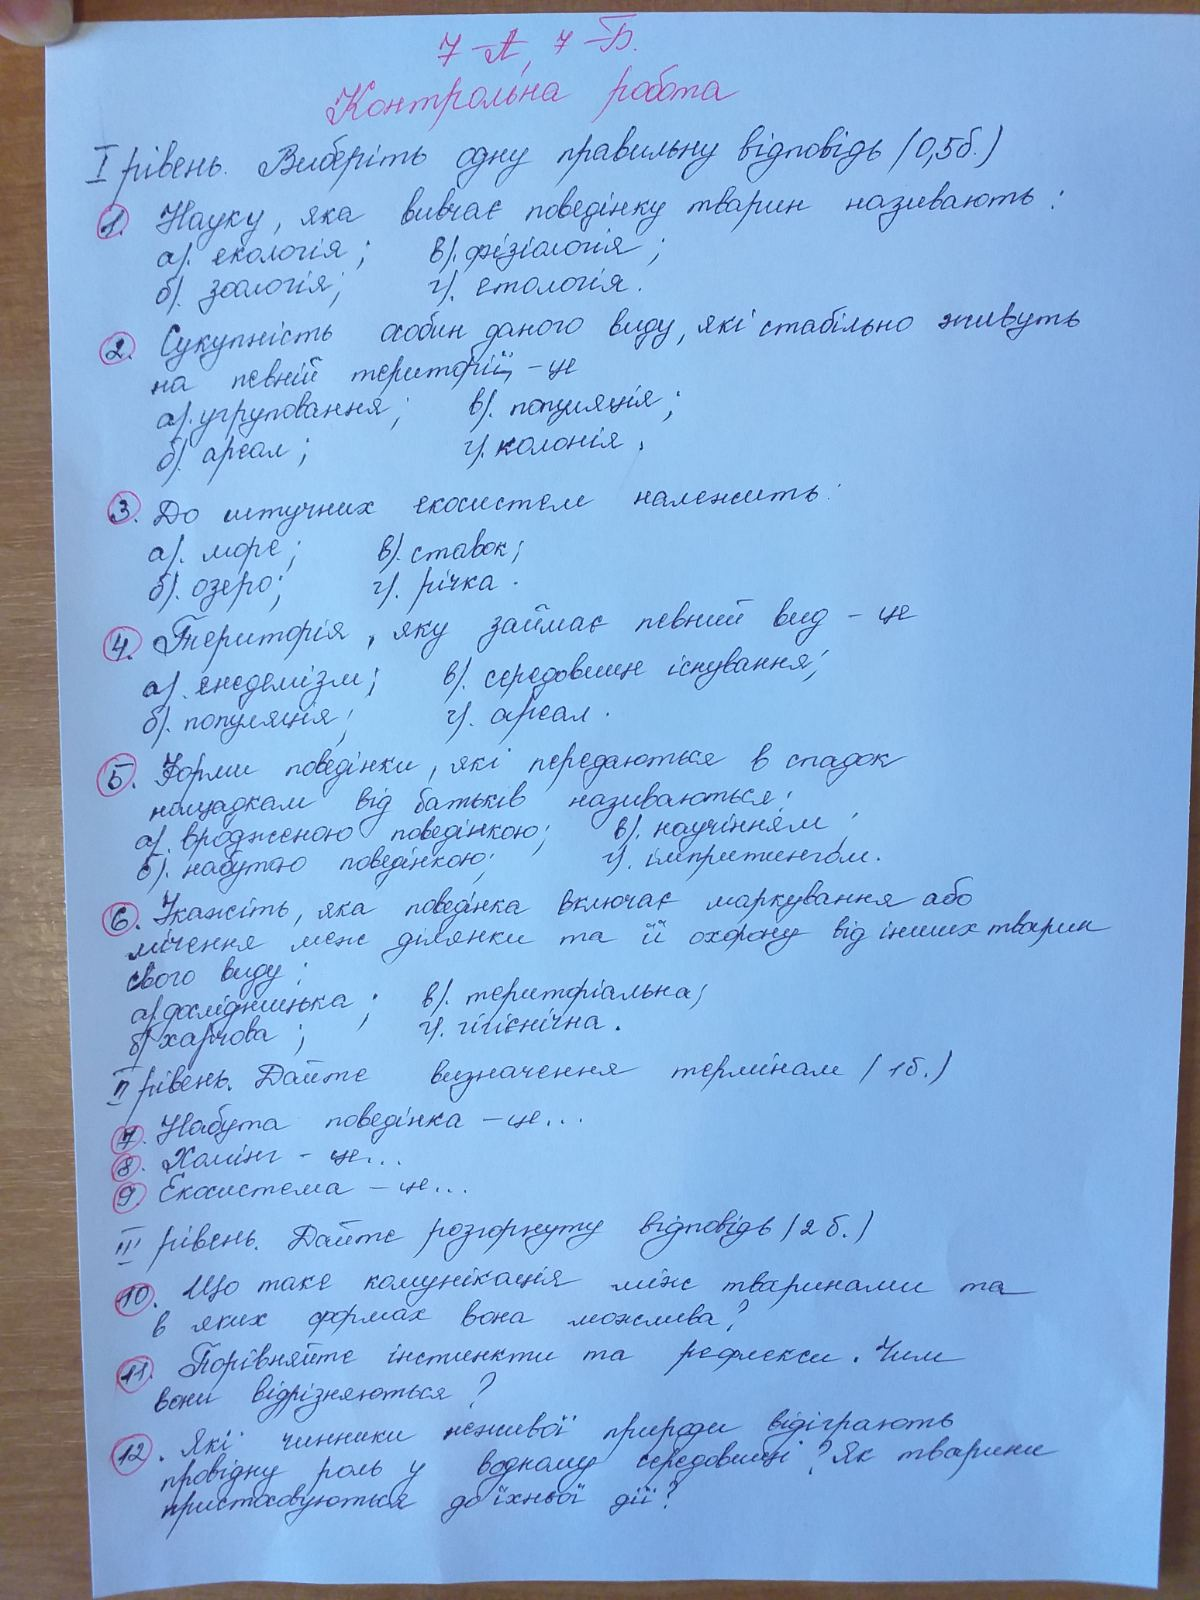 7-А, 7-Б.
Контрольна робота
I рівень. Виберіть одну правильну відповідь (0,5б.)
1. Науку, яка вивчає поведінку тварин називають:
а). екологія; в). фізіологія;
б). зоологія; г). етологія.
2. Сукупність особин даного виду, які стабільно живуть
на певній території, - це
а). угруповання; в). популяція;
б). ареал; г). колонія.
3. До штучних екосистем належить:
а). море; в). ставок;
б). озеро; г). річка.
4. Територія, яку займає певний вид - це
а). енедемізм; в). середовище існування;
б). популяція; г). ареал.
5. Форми поведінки, які передаються в спадок
нащадкам від батьків називаються:
а). вродженою поведінкою; в). научінням;
б). набутою поведінкою; г). імпритингом.
6. Укажіть, яка поведінка включає маркування або
мічення меж ділянки та її охорону від інших тварин
свого виду:
а) дослідницька; в). територіальна;
б) харчова; г). гігієнічна.
II рівень. Дайте визначення термінам (1б.)
7. Набута поведінка - це...
8. Хомінг - це...
9. Екосистема - це...
III рівень. Дайте розгорнуту відповідь (2б.)
10. Що таке комунікація між тваринами та
в яких формах вона можлива?
11. Порівняйте інстинкти та рефлекси. Чим
вони відрізняються?
12. Які чинники неживої природи відіграють
провідну роль у водному середовищі? Як тварини
пристосовуються до їхньої дії?